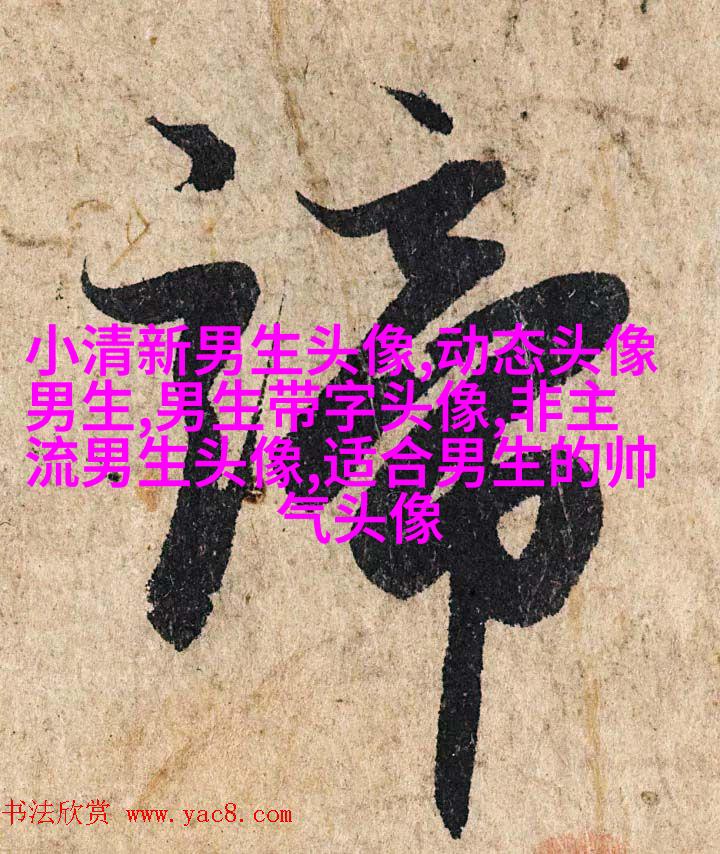 谛
小清新男生头像,动态头像
男生,男生带字头像,非主
流男生头像,适合男生的帅
气头像
书法欣赏 www.yac8.com